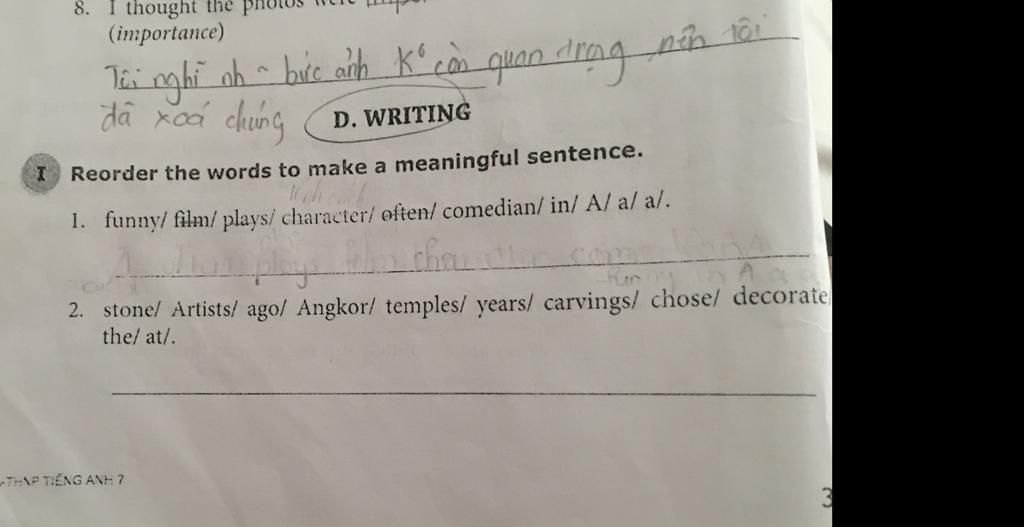 8. I thought the photos were
(importance)
Tôi nghĩ nh ~ bức ảnh K° còn quan trọng nên tôi
đã xoá chúng
D. WRITING
I Reorder the words to make a meaningful sentence.
1. funny/ film/ plays/ character/ often/ comedian/ in/ A/ a/ a/.
plays character
2. stone/ Artists/ ago/ Angkor/ temples/ years/ carvings/ chose/ decorate
the/ at/.
-THNP TIẾNG ANH 7
3